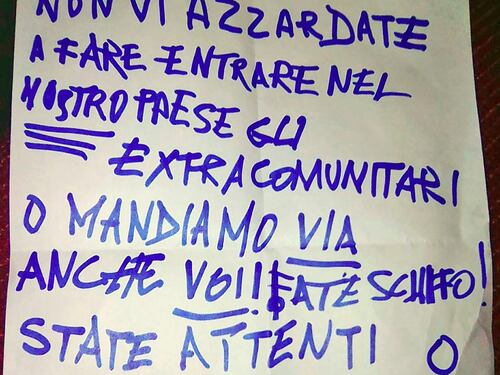 NON VI AZZARDATE
A FARE ENTRARE NEL
NOSTRO PAESE GLI
EXTRACOMUNITARI
O MANDIAMO VIA
ANCHE VOI! FATE SCHIFO!
STATE ATTENTI O